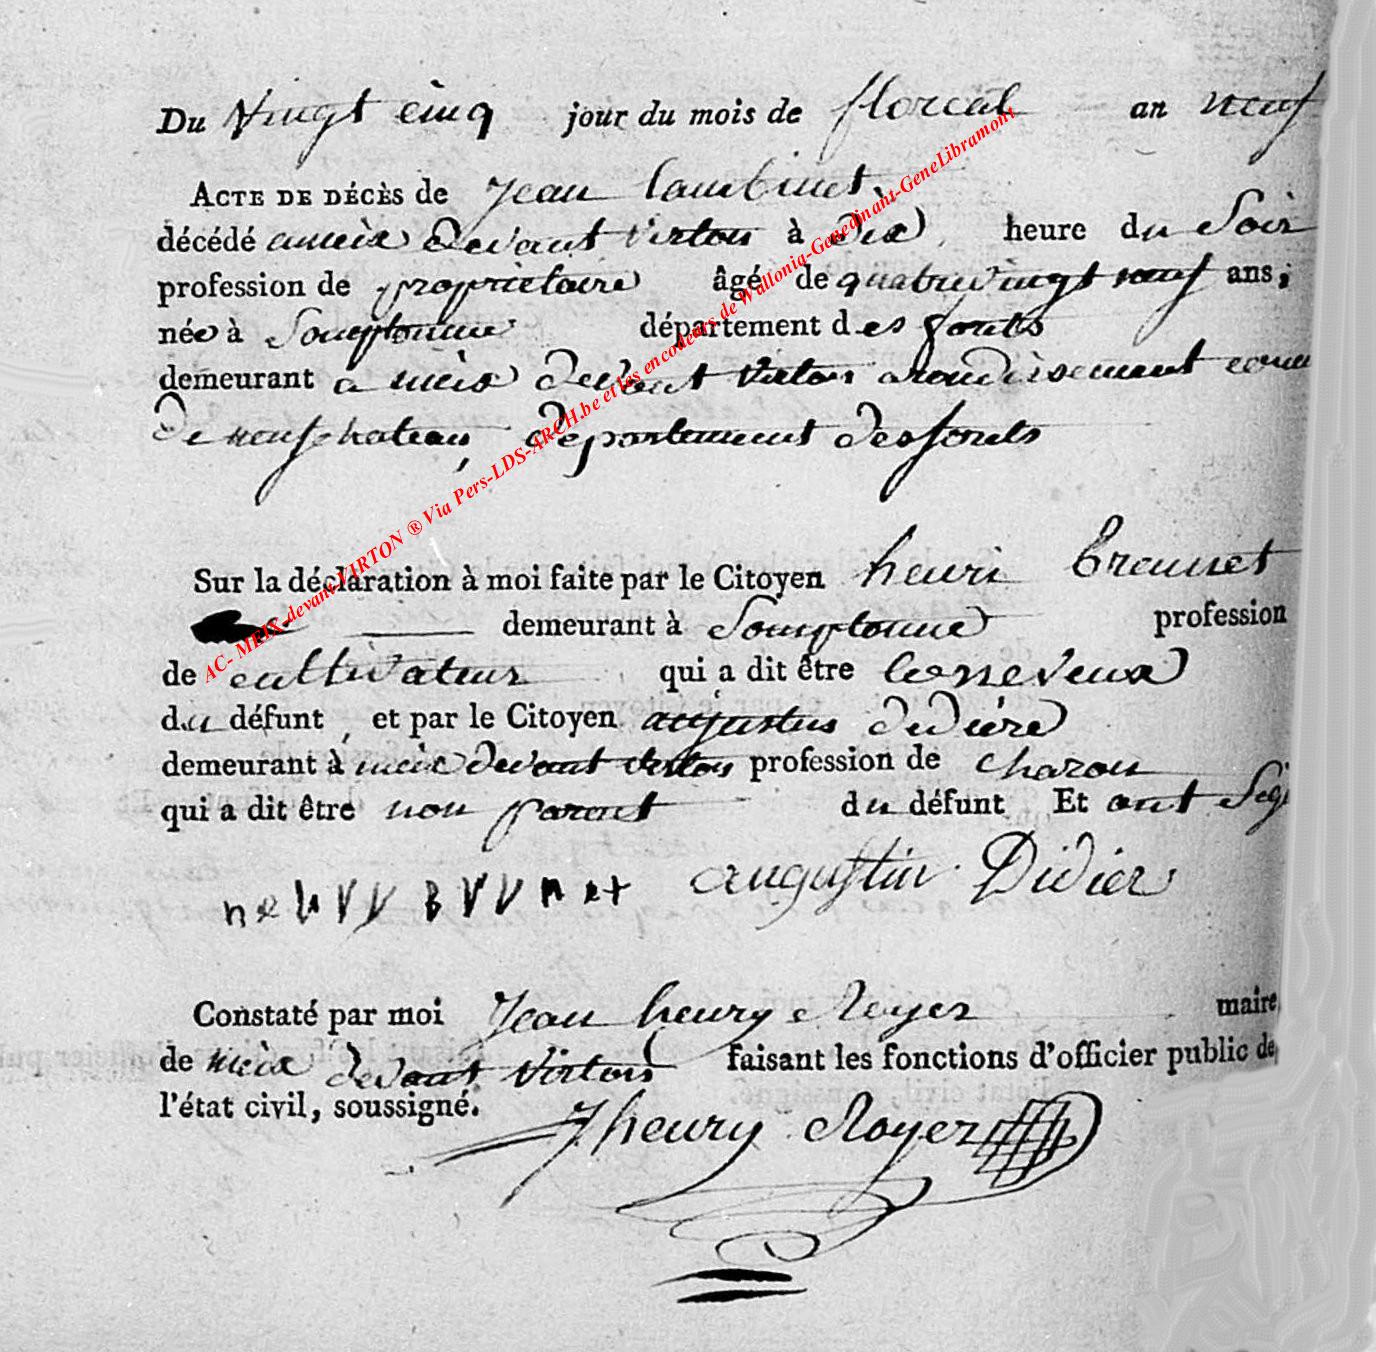 Du Vingt cinq jour du mois de floreal an neuf
ACTE DE DÉCÈS de Jean Lambinet
décédé a meix devant virton à dix heure du Soir
profession de proprietaire âgé de quatrevingt neuf ans,
née à Somptonne département des forets
demeurant a meix devant virton arondisement comm
de neufchateau, departement des forets
Sur la déclaration à moi faite par le Citoyen henri breunet
demeurant à Somptonne profession
de cultivateur qui a dit être le neveux
du défunt, et par le Citoyen augustus didière
demeurant à meix devant virton profession de charon
qui a dit être non parent du défunt Et ont Sig
augustin Didier
Constaté par moi Jean henry Royer maire
de meix devant virton faisant les fonctions d'officier public de
l'état civil, soussigné.
Jhenry Royer
AC- MEIX-devant-VIRTON ® Via Pers-LDS-ARCH.be et les encodeurs de Wallonia-Genedinant-GeneLibramont